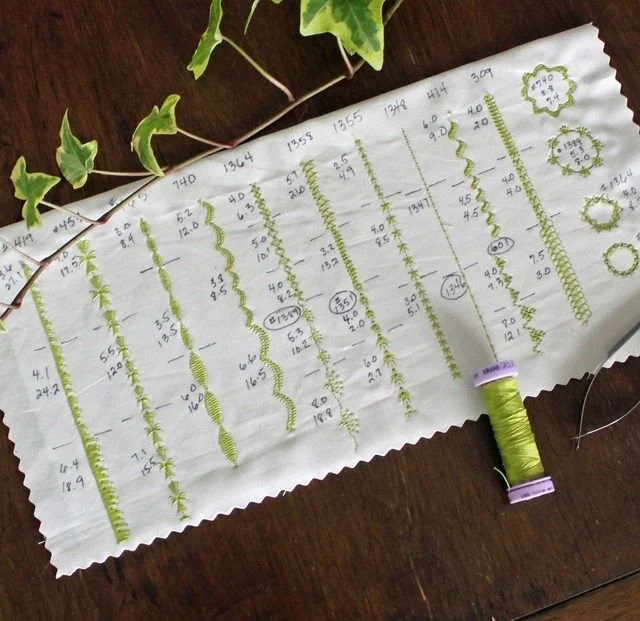 419
740
1364
1358
1355
1348
414
309
4.1
24.2
6.4
18.9
17.5
5.5
12.0
7.1
15.5
3.0
8.4
3.5
13.5
6.0
16.0
5.2
12.0
3.8
8.5
6.6
16.5
4.0
6.3
5.0
4.0
8.2
#1389
5.3
10.2
8.0
18.8
3.7
21.0
3.2
13.2
#1351
4.0
2.0
6.0
2.7
2.5
4.9
4.0
8.5
3.0
5.1
1347
1346
6.0
9.0
4.5
4.5
601
4.0
7.3
8.0
12.1
4.0
2.0
4.0
4.0
7.5
3.0
#740
3.8
7.4
#1389
5.3
8.0
#1364